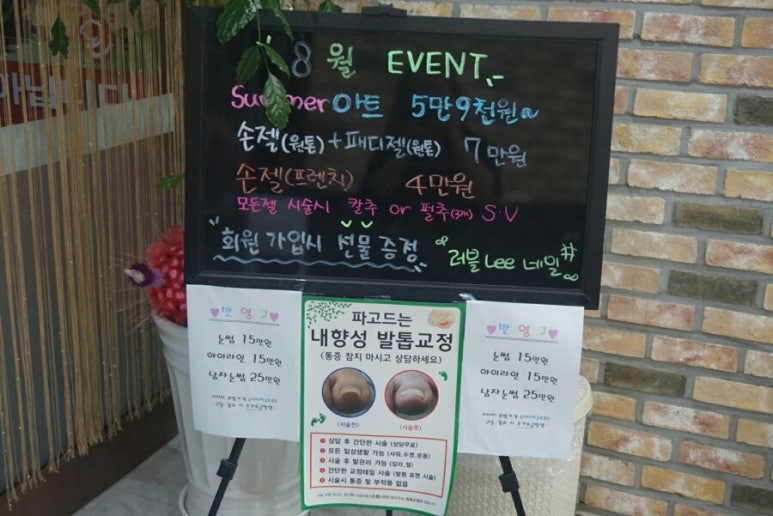 8월 EVENT
Summer 아트 5만9천원
손젤(원톤)+패디젤(원톤) 7만원
손젤(프렌치) 4만원
모든젤 시술시 칼추 or 펄추(3개) S.V
회원 가입시 선물 증정
러블 Lee 네일#
반영구
눈썹 15만원
아이라인 15만원
남자눈썹 25만원
파고드는
내향성 발톱교정
(통증 참지 마시고 상담하세요)
(시술전)
(시술후)
상담 후 간단한 시술 (상담무료)
모든 일상생활 가능 (샤워,수영,운동)
시술 후 발관리 가능 (컬러,젤)
간단한 교정테잎 시술 (발톱 표면 시술)
시술시 통증 및 부작용 없음
반영구
눈썹 15만원
아이라인 15만원
남자눈썹 25만원